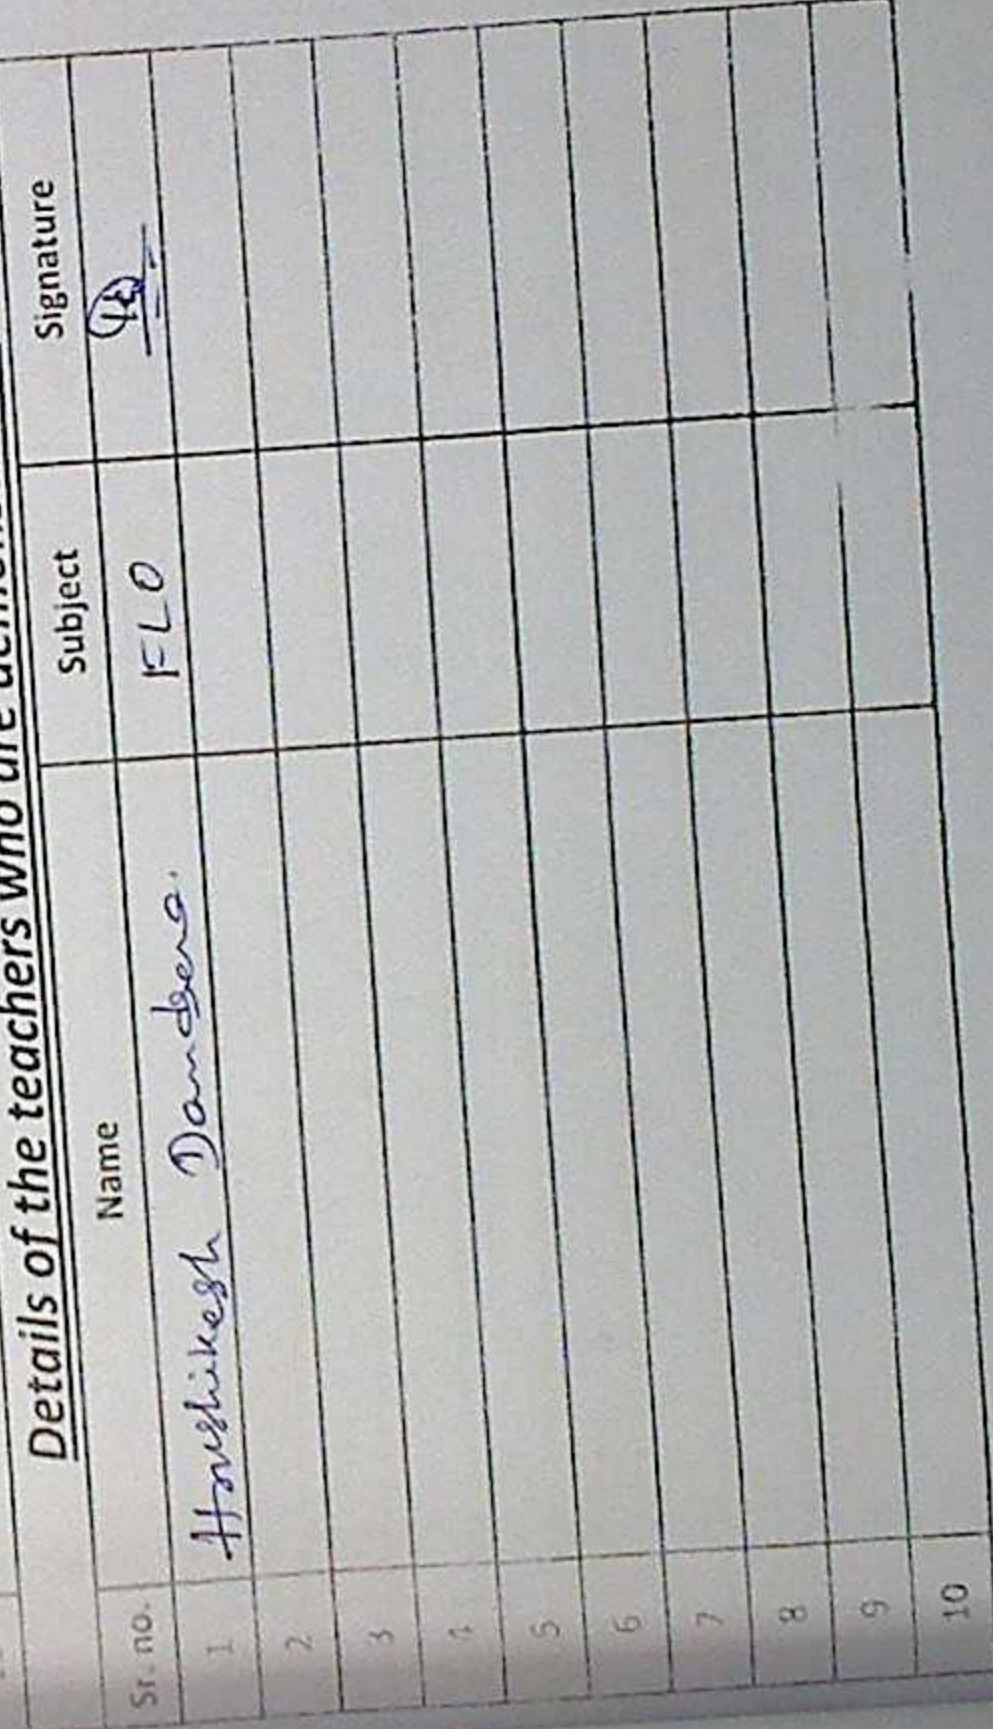 Details of the teachers who are
Sr. no. Name Subject Signature
1 Hrushikesh FLO
2
3
4
5
6
7
8
9
10